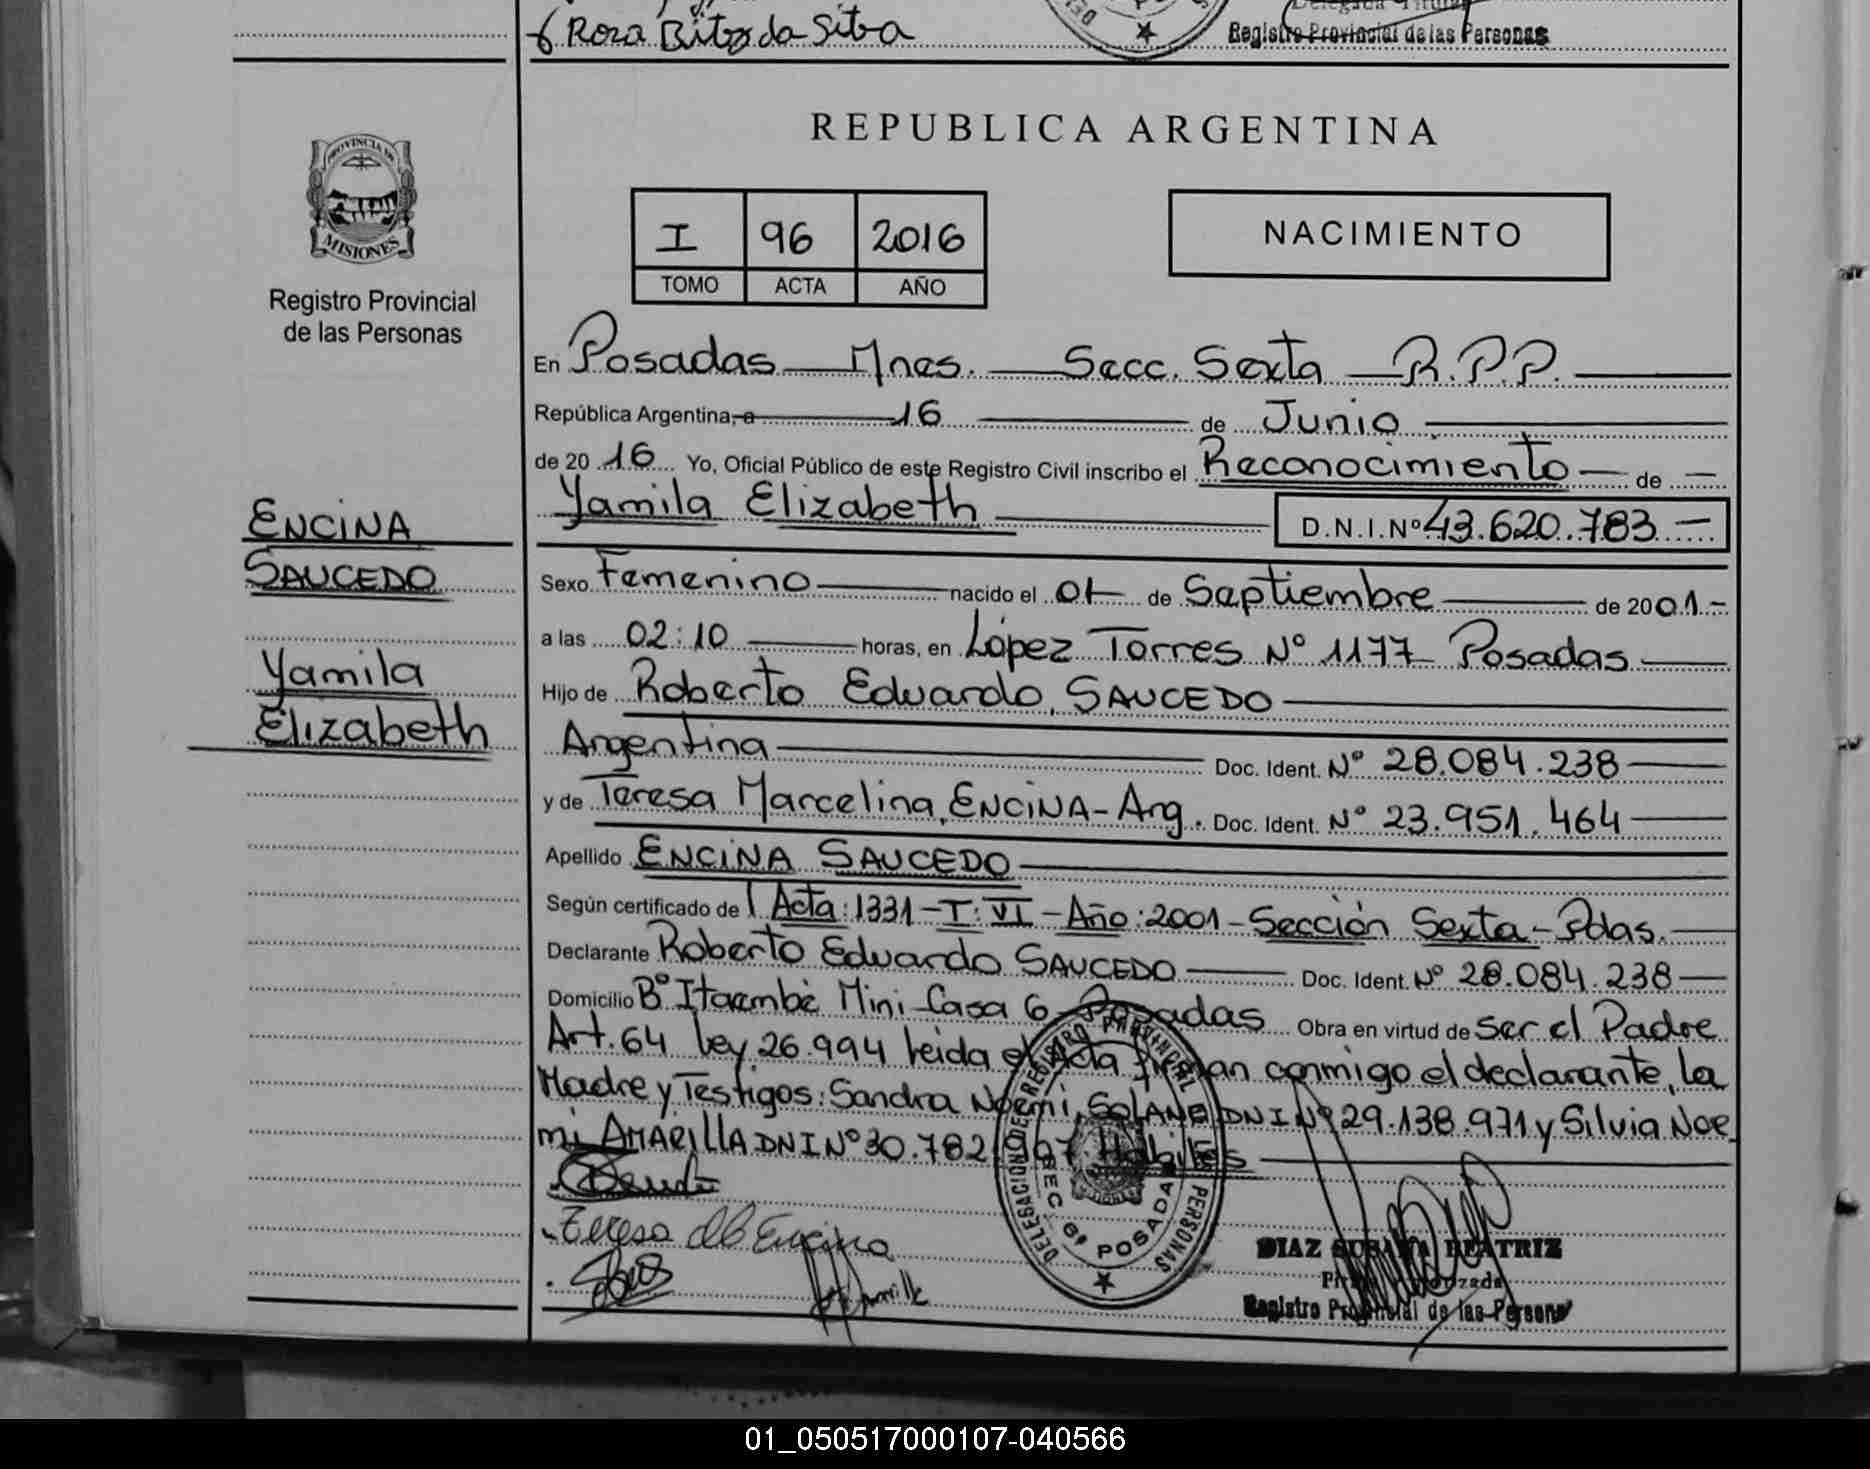 Rosa Brito da Silva
Delegada Titular
Registro Provincial de las Personas
PROVINCIA DE
MISIONES
Registro Provincial
de las Personas
REPUBLICA ARGENTINA
I 96 2016
TOMO ACTA AÑO
NACIMIENTO
En Posadas Mnes. Secc. Sexta R.P.P.
República Argentina, a 16 de Junio
de 20 16 Yo, Oficial Público de este Registro Civil inscribo el Reconocimiento de
Yamila Elizabeth D.N.I.Nº 43.620.783
ENCINA
SAUCEDO
Yamila
Elizabeth
Sexo Femenino nacido el 01 de Septiembre de 2001
a las 02:10 horas, en López Torres Nº 1177 Posadas
Hijo de Roberto Eduardo, SAUCEDO
Argentina Doc. Ident. Nº 28.084.238
y de Teresa Marcelina, ENCINA-Arg. Doc. Ident. Nº 23.951.464
Apellido ENCINA SAUCEDO
Según certificado de Acta: 1331-T: VI-Año: 2001-Sección Sexta-Pdas.
Declarante Roberto Eduardo SAUCEDO Doc. Ident. Nº 28.084.238
Domicilio Bº Itaembé Mini-Casa 6-Posadas Obra en virtud de Ser el Padre
Art. 64 Ley 26.994 leida el Acta firman conmigo el declarante, la
Madre y Testigos: Sandra Noemi, SOLANE DNI Nº 29.138.971 y Silvia Noe
mi AMARILLA DNI Nº 30.782 Habiles
Teresa Encina
DELEGACION DE REGISTRO PROVINCIAL PERSONAS
SEC 6ª POSADAS
DIAZ SUSANA BEATRIZ
Registro Provincial de las Persona
01_050517000107-040566